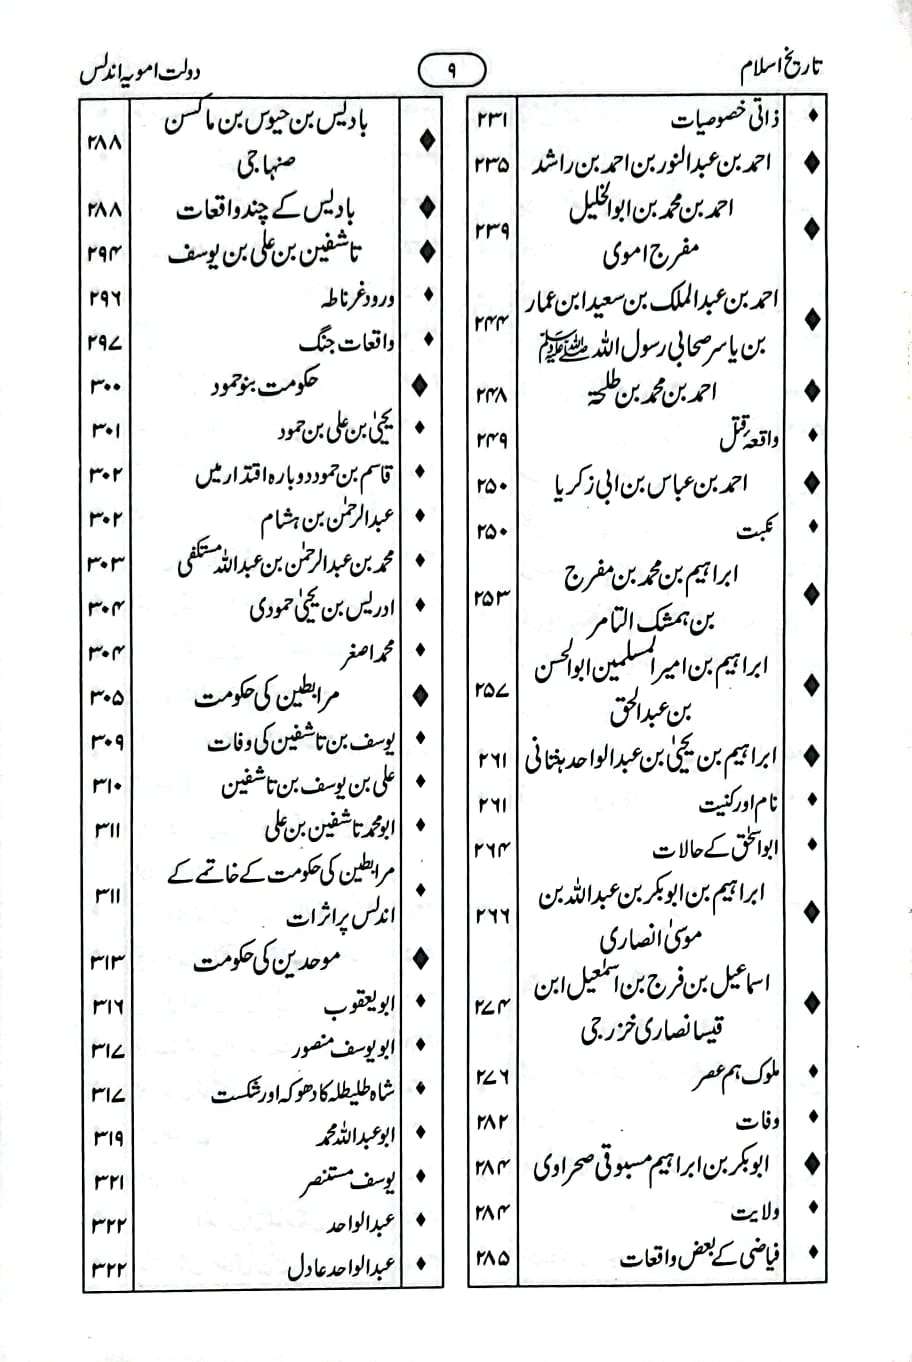 تاریخ اسلام
۹
دولت امویہ اندلس
♦ ذاتی خصوصیات ۲۳۱
◆ احمد بن عبدالنور بن احمد بن راشد ۲۳۵
◆ احمد بن محمد بن ابوالخلیل
مفرج اموی ۲۳۹
◆ احمد بن عبدالملک بن سعید ابن عمار
بن یاسر صحابی رسول اللہ ﷺ ۲۴۴
◆ احمد بن محمد بن طلحۃ ۲۴۸
♦ واقعۂ قتل ۲۴۹
◆ احمد بن عباس بن ابی زکریا ۲۵۰
♦ نکبت ۲۵۰
◆ ابراہیم بن محمد بن مفرج
بن ہمشک التامر ۲۵۳
◆ ابراہیم بن امیر المسلمین ابوالحسن
بن عبدالحق ۲۵۷
◆ ابراہیم بن یحییٰ بن عبدالواحد ہنتانی ۲۶۱
♦ نام اور کنیت ۲۶۱
♦ ابواسحٰق کے حالات ۲۶۴
◆ ابراہیم بن ابوبکر بن عبداللہ بن
موسیٰ انصاری ۲۶۶
◆ اسماعیل بن فرج بن اسمٰعیل ابن
قیسا نصاری خزرجی ۲۷۴
♦ ملوک ہم عصر ۲۷۶
♦ وفات ۲۸۲
◆ ابوبکر بن ابراہیم مسبوقی صحراوی ۲۸۴
♦ ولایت ۲۸۴
♦ فیاضی کے بعض واقعات ۲۸۵
◆ بادیس بن حیوس بن ماکسن
صنہاجی ۲۸۸
◆ بادیس کے چند واقعات ۲۸۸
◆ تاشفین بن علی بن یوسف ۲۹۴
♦ ورود غرناطہ ۲۹۶
♦ واقعات جنگ ۲۹۷
◆ حکومت بنو حمود ۳۰۰
♦ یحییٰ بن علی بن حمود ۳۰۱
♦ قاسم بن حمود دوبارہ اقتدار میں ۳۰۲
♦ عبدالرحمٰن بن ہشام ۳۰۲
♦ محمد بن عبدالرحمٰن بن عبداللہ مستکفی ۳۰۳
♦ ادریس بن یحییٰ حمودی ۳۰۴
♦ محمد اصغر ۳۰۴
◆ مرابطین کی حکومت ۳۰۵
♦ یوسف بن تاشفین کی وفات ۳۰۹
♦ علی بن یوسف بن تاشفین ۳۱۰
♦ ابو محمد تاشفین بن علی ۳۱۱
♦ مرابطین کی حکومت کے خاتمے کے
اندلس پر اثرات ۳۱۱
◆ موحدین کی حکومت ۳۱۳
♦ ابو یعقوب ۳۱۶
♦ ابو یوسف منصور ۳۱۷
♦ شاہ طلیطلہ کا دھوکہ اور شکست ۳۱۷
♦ ابو عبداللہ محمد ۳۱۹
♦ یوسف مستنصر ۳۲۱
♦ عبدالواحد ۳۲۲
♦ عبدالواحد عادل ۳۲۲